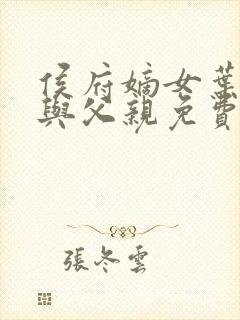 侯府嫡女葉
與父親免費
張冬雲